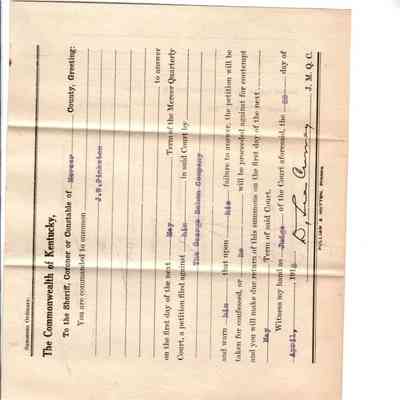 Summons Ordinary.
The Commonwealth of Kentucky,
To the Sheriff, Coroner or Constable of Mercer County, Greeting:
You are commanded to summon
J.W.Pinkston
to answer
on the first day of the next May Term of the Mercer Quarterly
Court, a petition filed against him in said Court by
The George Delker Company
and warn him that upon his failure to answer, the petition will be
taken for confessed, or he will be proceeded against for contempt
and you will make due return of this summons on the first day of the next
May Term of said Court.
Witness my hand as Judge of the Court aforesaid, the day of
April, 191
J. M. Q. C.